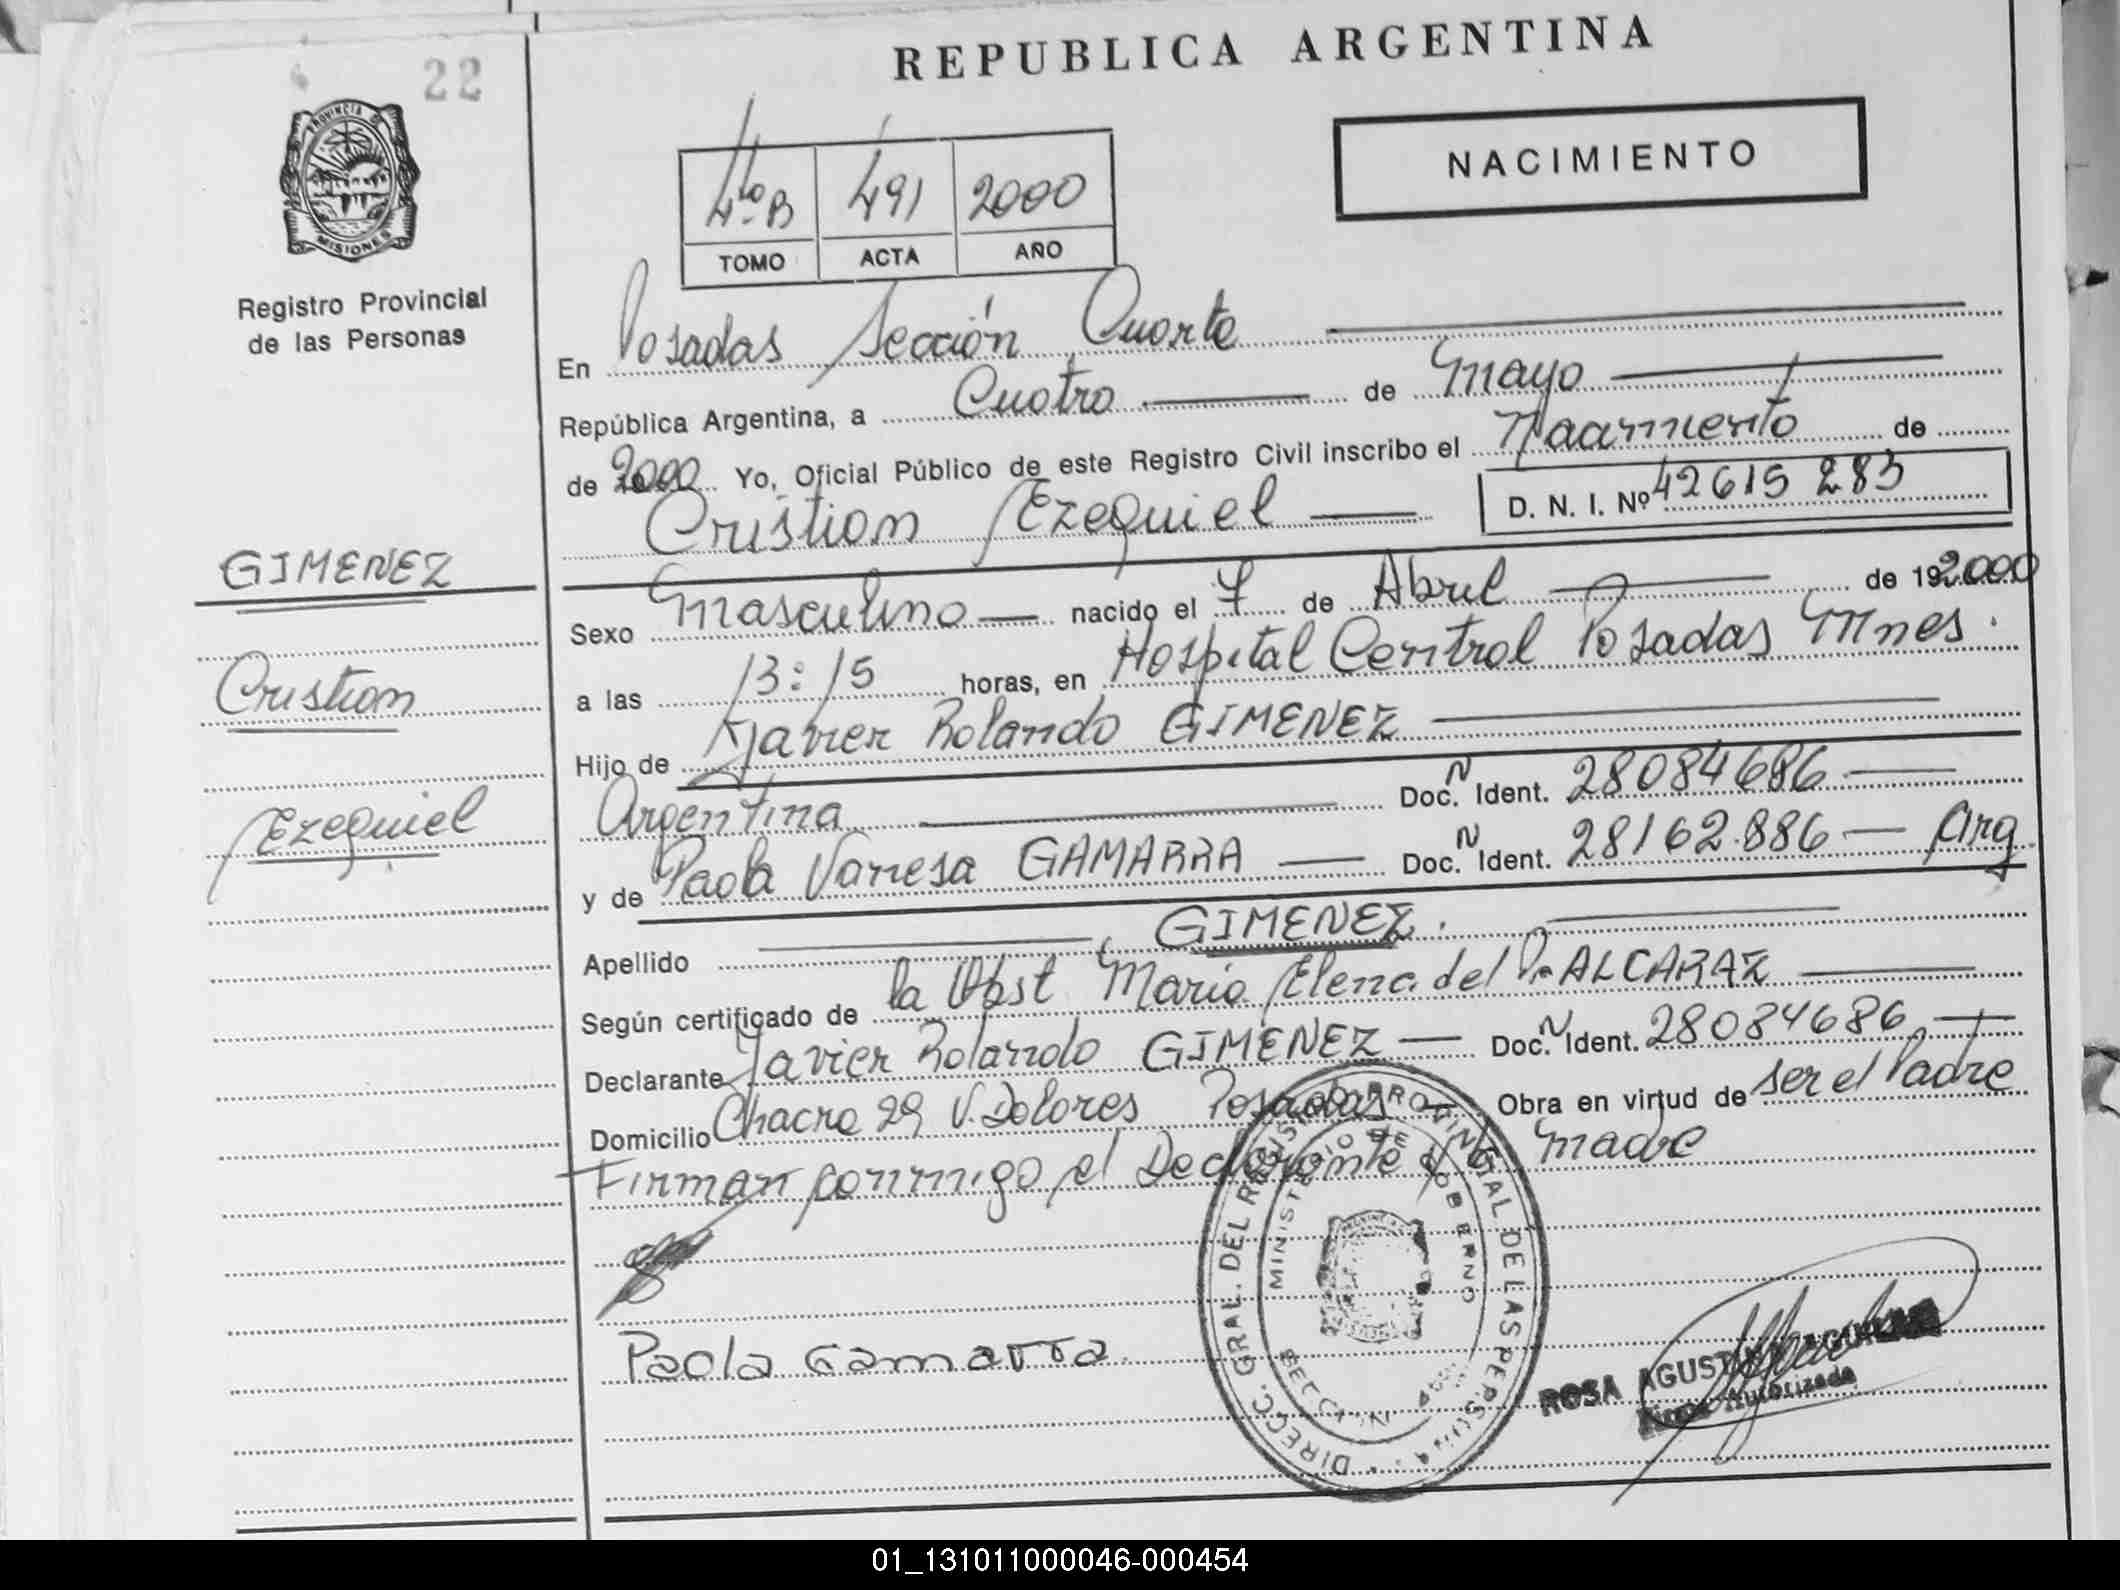 22
REPUBLICA ARGENTINA
PROVINCIA DE
MISIONES
Registro Provincial
de las Personas
NACIMIENTO
4to B 491 2000
TOMO ACTA AÑO
En Posadas Sección Cuarta
República Argentina, a Cuatro de Mayo
de 2000 Yo, Oficial Público de este Registro Civil inscribo el Nacimiento de
Cristian Ezequiel D. N. I. Nº 42615 283
GIMENEZ
Cristian
Ezequiel
Sexo Masculino nacido el 7 de Abril de 192000
a las 13:15 horas, en Hospital Central Posadas Mnes.
Hijo de Javier Rolando GIMENEZ
Argentina Doc. N Ident. 28084686
y de Paola Vanesa GAMARRA Doc. N Ident. 28162.886 Arg
Apellido GIMENEZ.
Según certificado de la Obst Maria Elena del ALCARAZ
Declarante Javier Rolando GIMENEZ Doc. N Ident. 28084686
Domicilio Chacra 29 V. Dolores Posadas Obra en virtud de ser el Padre
Firman conmigo el Declarante y la madre
Paola Gamarra
DIRECC. GRAL. DEL REGISTRO PROVINCIAL DE LAS PERSONAS
MINISTERIO DE GOBIERNO
SECCION
ROSA AGUSTINA AGUILAR
Firma Autorizada
01_131011000046-000454